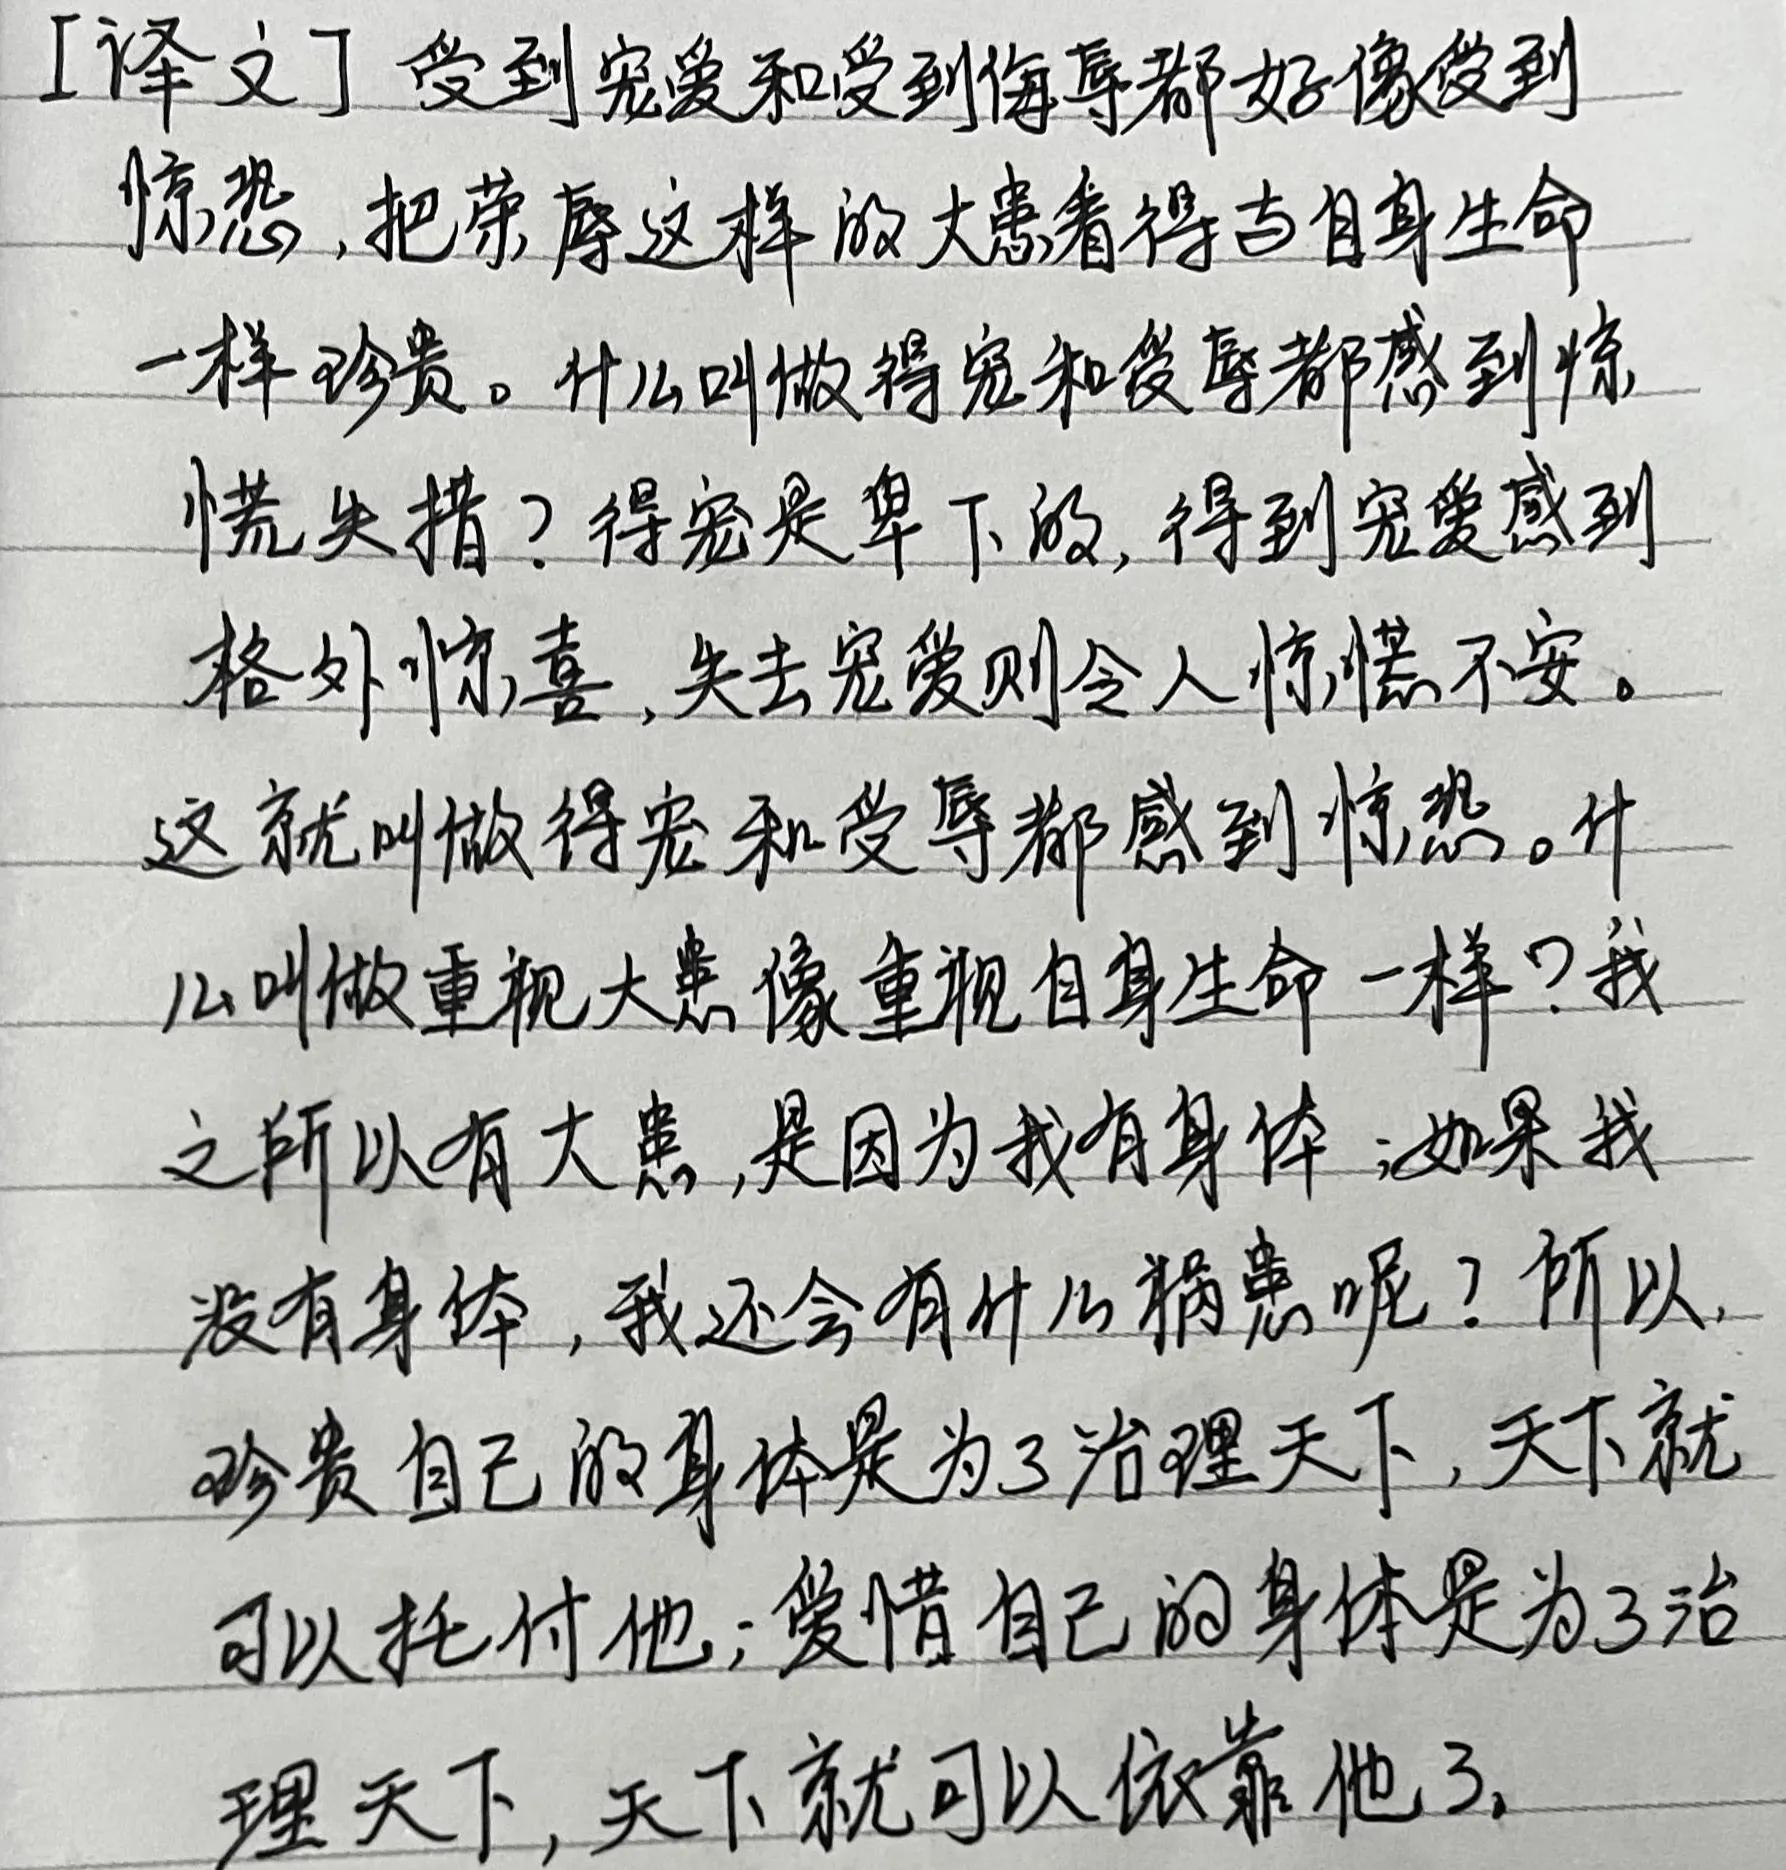 [译文] 受到宠爱和受到侮辱都好像受到
惊恐，把荣辱这样的大患看得与自身生命
一样珍贵。什么叫做得宠和受辱都感到惊
慌失措？得宠是卑下的，得到宠爱感到
格外惊喜，失去宠爱则令人惊慌不安。
这就叫做得宠和受辱都感到惊恐。什
么叫做重视大患像重视自身生命一样？我
之所以有大患，是因为我有身体；如果我
没有身体，我还会有什么祸患呢？所以，
珍贵自己的身体是为了治理天下，天下就
可以托付他；爱惜自己的身体是为了治
理天下，天下就可以依靠他了。